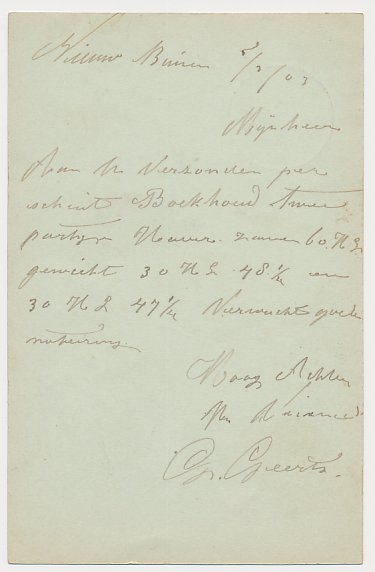 Nieuw Buinen 2/2/03
Mijnheer
Aan U Verzonden per
schuit Boekhoud twee
partijen Haver. zaam 60 HL
gewicht 30 HL 48 1/2 en
30 HL 47 1/2 Verwacht goede
noteering
Hoog Achten
G. Geerts.